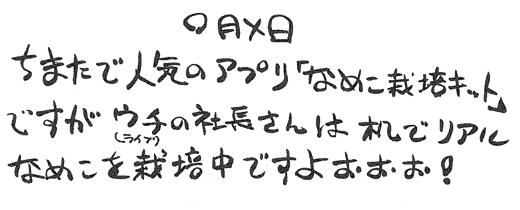 〇月×日
ちまたで人気のアプリ「なめこ栽培キット」
ですがウチの社長さんは机でリアル
(ライブラ)
なめこを栽培中ですよぉぉぉ!